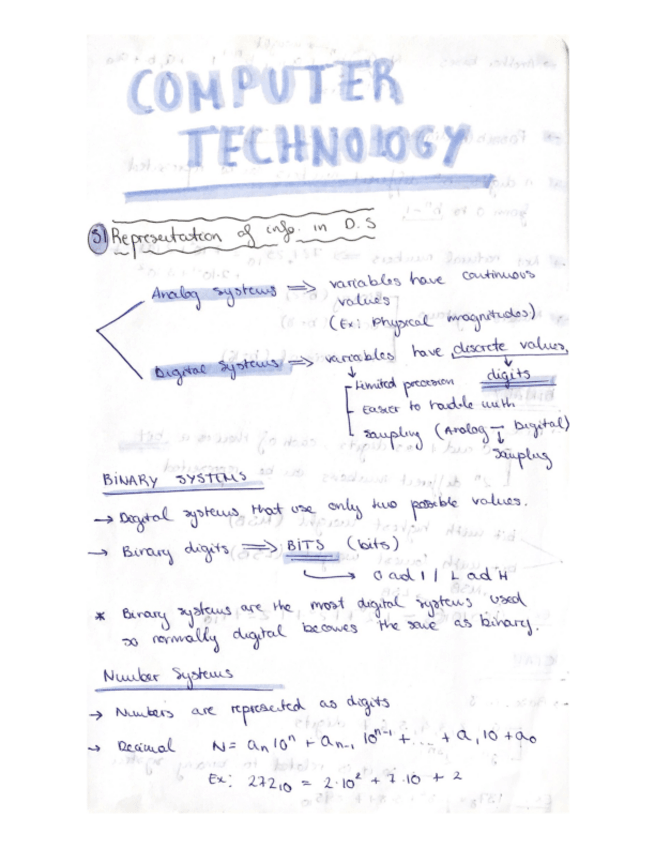 COMPUTER
TECHNOLOGY
S1 Representation of info. in D.S
Analog systems => variables have continuous
values
(Ex: Physical magnitudes)
Digital systems => variables have discrete values,
↓ ↓
Limited precision digits
Easier to handle with
Sampling (Analog → Digital)
↓
Sampling
BINARY SYSTEMS
→ Digital systems that use only two possible values.
→ Binary digits => BITS (bits)
→ 0 ad 1 // L ad H
* Binary systems are the most digital systems used
so normally digital becomes the same as binary.
Number Systems
→ Numbers are represented as digits
→ Decimal N = aₙ10ⁿ + aₙ₋₁ 10ⁿ⁻¹ + ... + a₁10 + a₀
Ex: 272₁₀ = 2·10² + 7·10 + 2